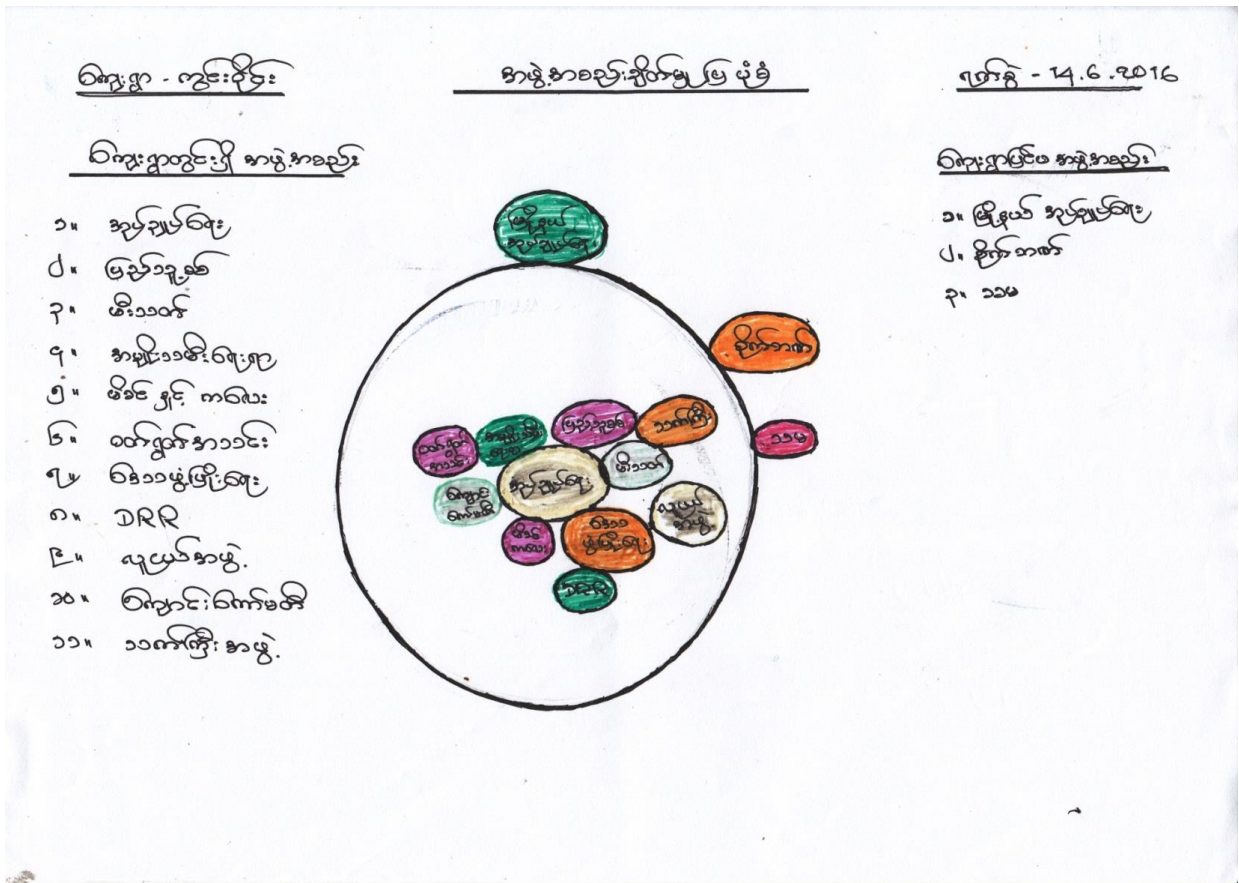 ကျေးရွာ - ကွင်းဝိုင်း
အဖွဲ့အစည်းချိတ်မှုပြပုံစံ
ရက်စွဲ - 14.6.2016
ကျေးရွာတွင်းရှိ အဖွဲ့အစည်း
၁။ အုပ်ချုပ်ရေး
၂။ ပြည်သူ့စစ်
၃။ မီးသတ်
၄။ အမျိုးသမီးရေးရာ
၅။ မိခင်နှင့် ကလေး
၆။ ဝတ်ရွတ်အသင်း
၇။ ဒေသဖွံ့ဖြိုးရေး
၈။ DRR
၉။ လူငယ်အဖွဲ့
၁၀။ ကျောင်းကော်မတီ
၁၁။ သက်ကြီးအဖွဲ့
ကျေးရွာပြင်ပ အဖွဲ့အစည်း
၁။ မြို့နယ် အုပ်ချုပ်ရေး
၂။ စိုက်ဘဏ်
၃။ သသမ
မြို့နယ်
အုပ်ချုပ်ရေး
စိုက်ဘဏ်
သသမ
ဝတ်ရွတ်
အသင်း
အမျိုးသမီး
ရေးရာ
ပြည်သူ့စစ်
သက်ကြီး
ကျောင်း
ကော်မတီ
အုပ်ချုပ်ရေး
မီးသတ်
လူငယ်
အဖွဲ့
မိခင်
ကလေး
ဒေသ
ဖွံ့ဖြိုးရေး
DRR